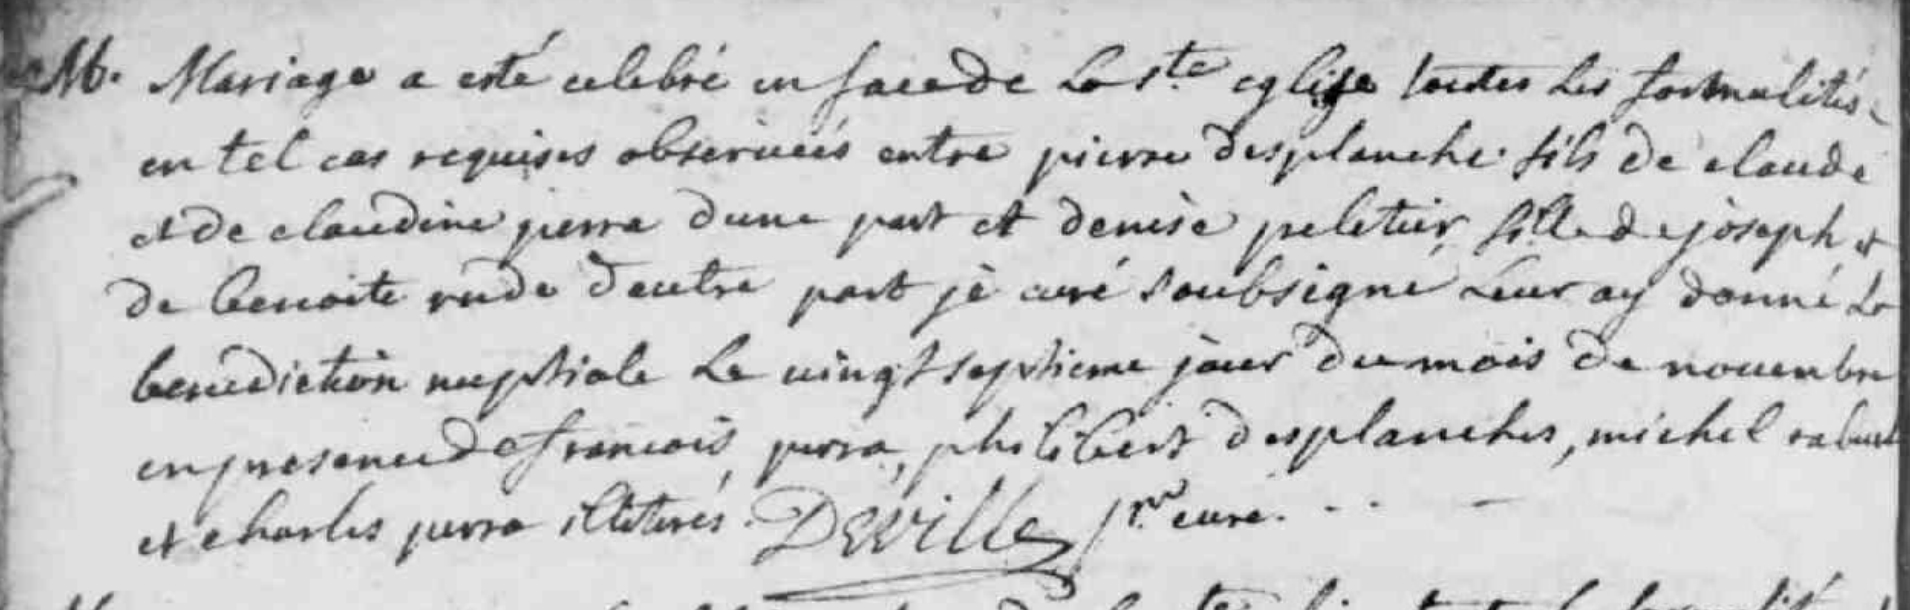 M. Mariage a esté celebré en face de la ste eglise toutes les formalités
en tel cas requises observeés entre pierre desplanche fils de claude
et de claudine perra dune part et denise peletier fille de joseph et
de benoite rude dautre part je curé soubsigné leur ay donné la
benediction nuptiale le vingt septieme jour du mois de novembre
en presence de francois perra, philibert desplanches, michel
et charles perra illiterés. Deville curé.